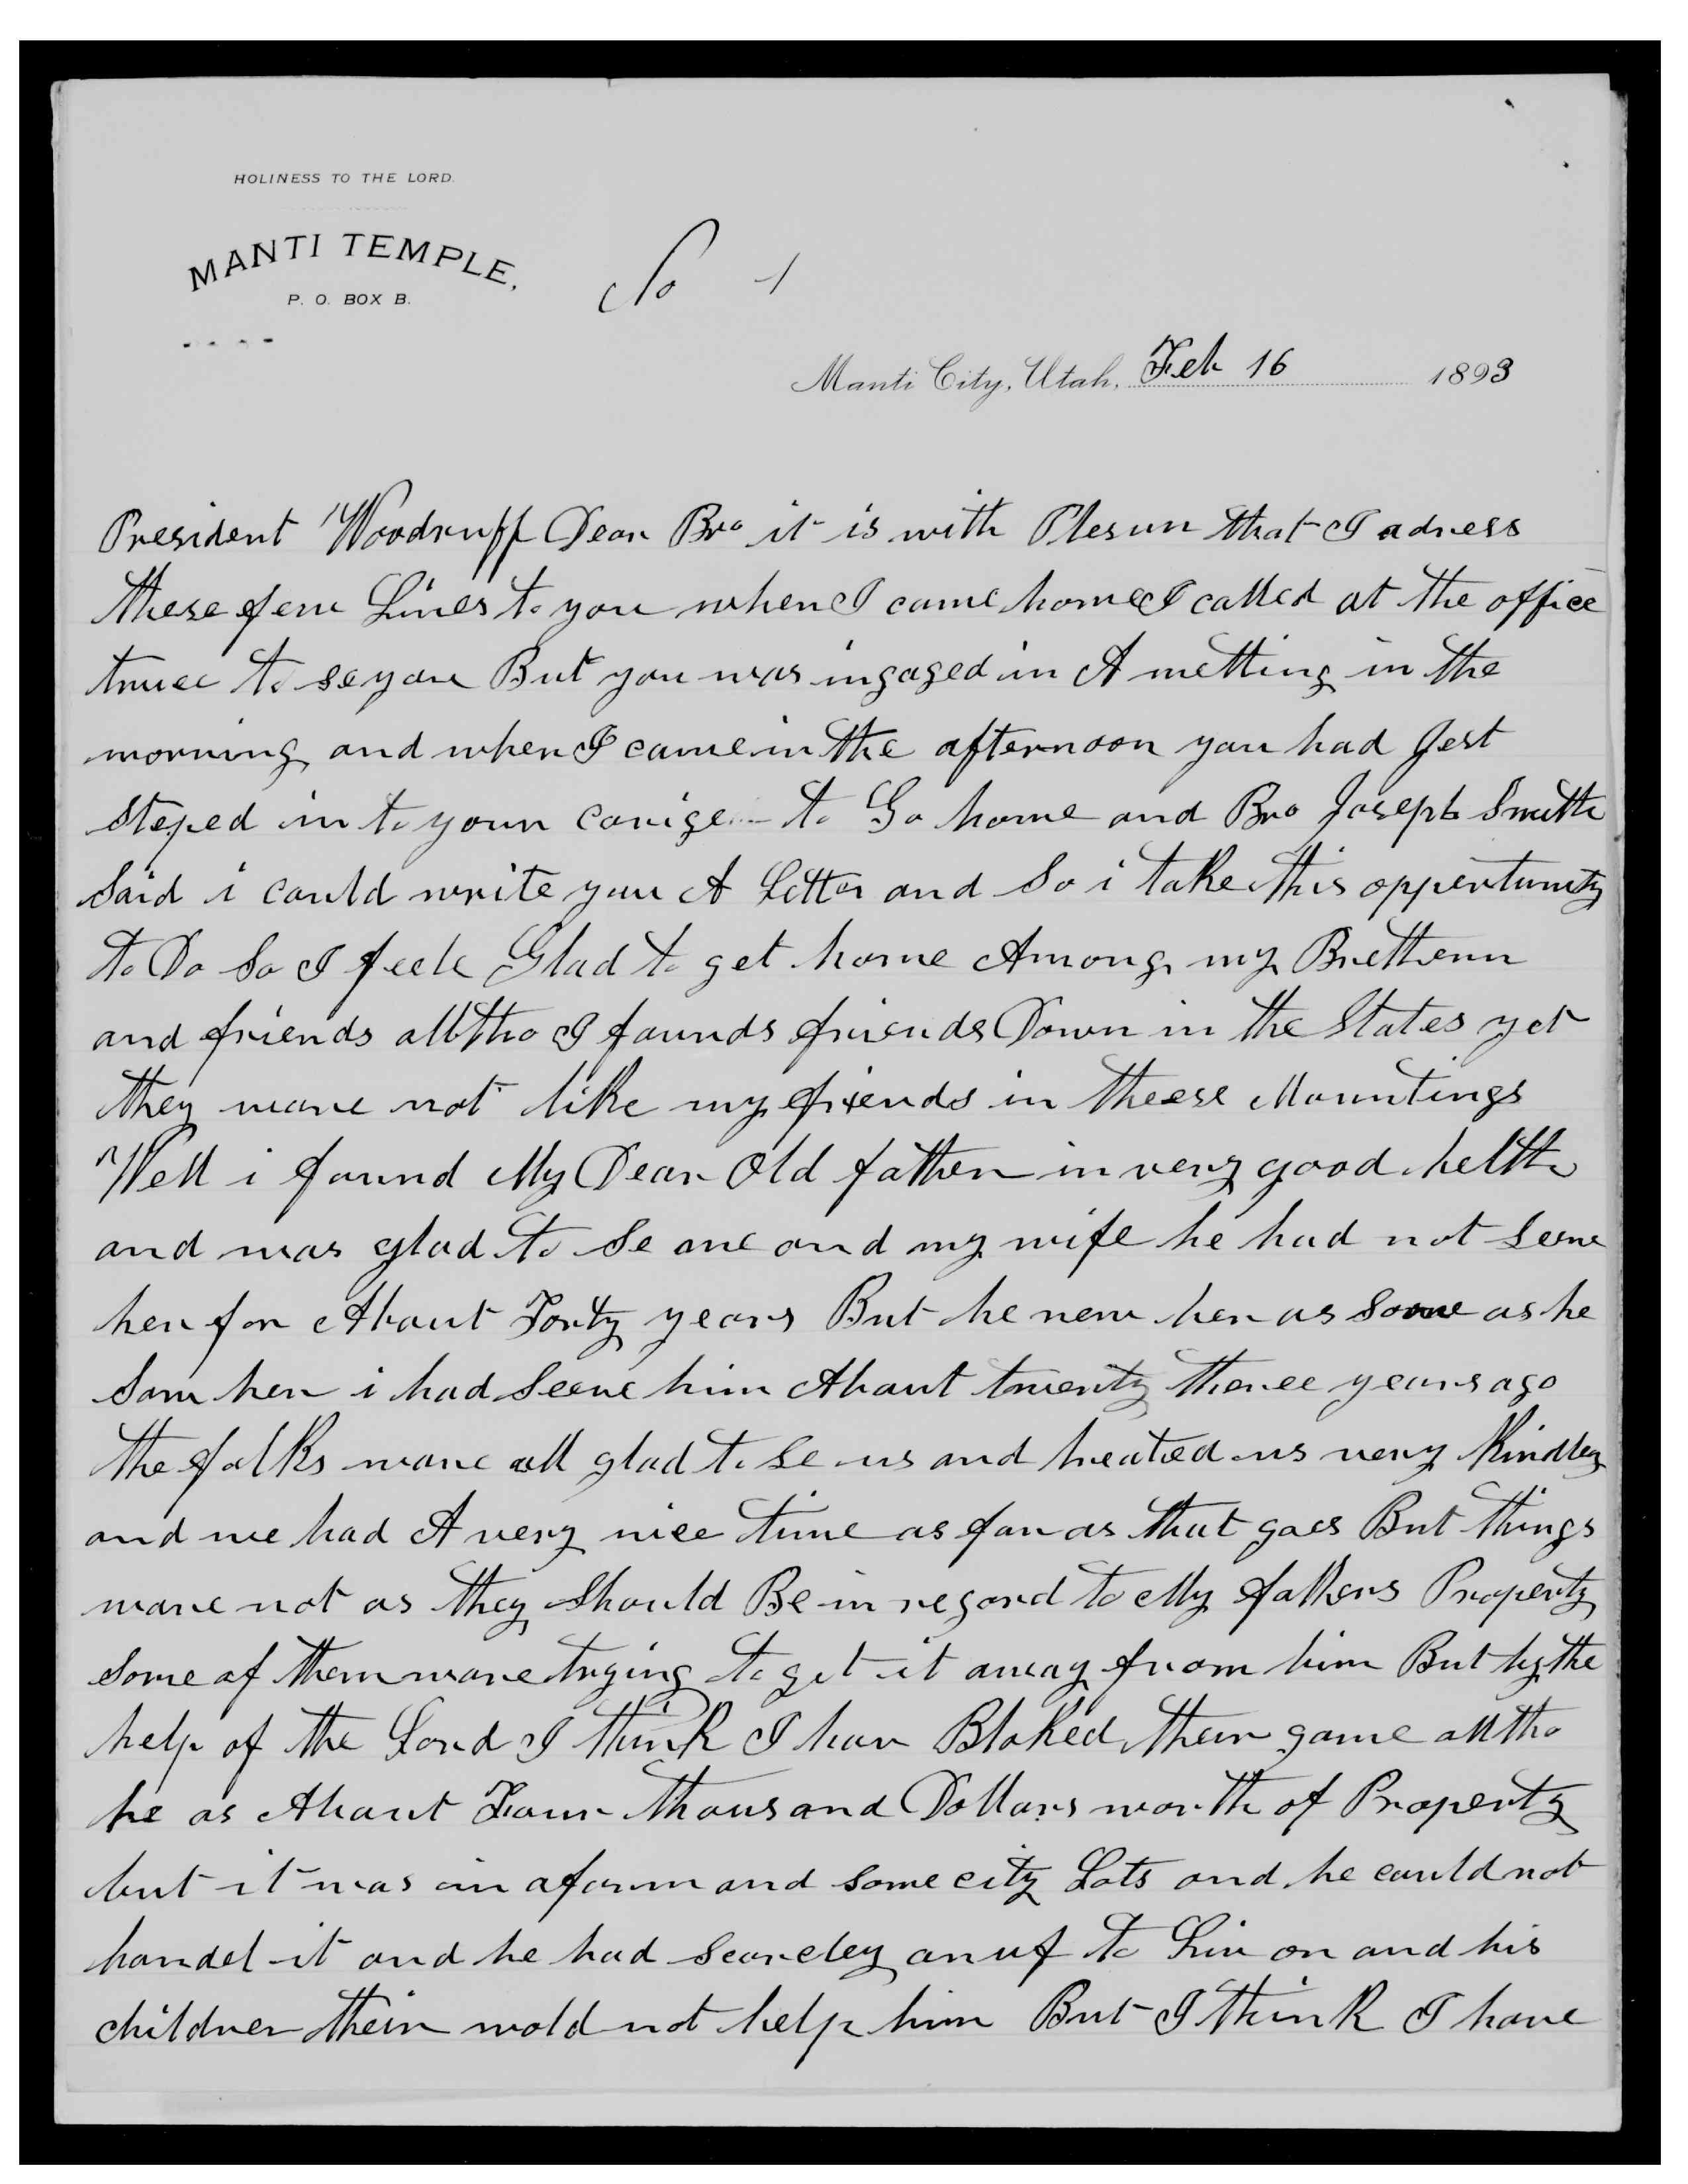 HOLINESS TO THE LORD.
MANTI TEMPLE,
P. O. BOX B.
No 1
Manti City, Utah, Feb 16 1893
President Woodruff Dear Bro it is with Plesur that I adress
these few Lines to you when I came home I called at the office
twice to se you But you was ingaged in A metting in the
morning and when I came in the afternoon you had Jest
steped in to your carige to Go home and Bro Joseph Smith
Said i could write you A Letter and So i take this oppertunity
to Do So I feele Glad to get home Among my Brethern
and friends alltho I founds friends Down in the States yet
they ware not like my friends in theese Mountings
Well i found My Dear Old father in very good helth
and was glad to Se me and my wife he had not Seene
her for About Forty years But he new her as Soone as he
Saw her i had Seene him About twenty three years ago
the folks ware all glad to Se us and treated us very Kindley
and we had A very nice time as far as that goes But things
ware not as they Should Be in regard to My fathers Property
some of them ware trying to get it away from him But by the
help of the Lord I think I hav Bloked their game alltho
he as About Four thousand Dollars worth of Property
but it was in a farm and some city Lots and he could not
handel it and he had scarcley anuf to Liv on and his
children their wold not help him But I think I have